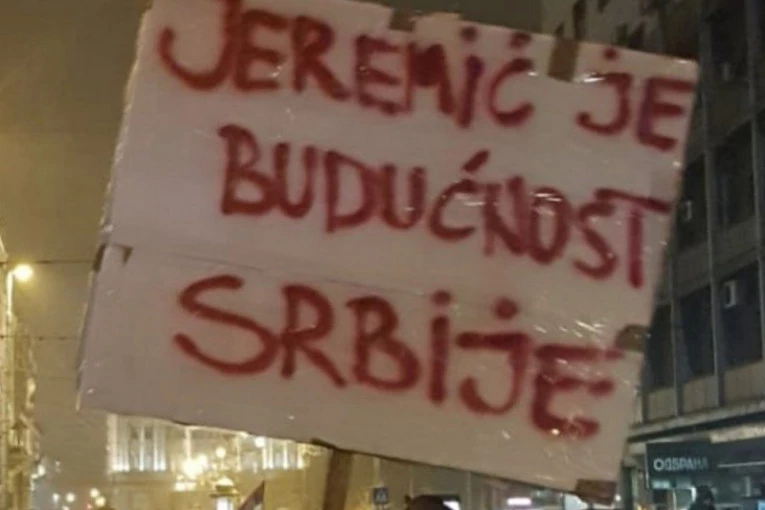 JEREMIĆ JE
BUDUĆNOST
SRBIJE
ОДБРАНА